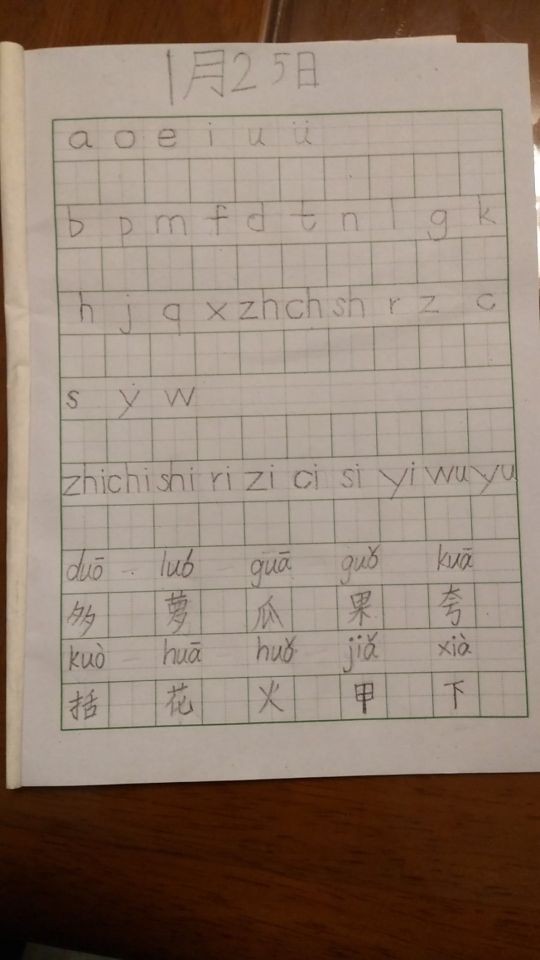 1月25日
a o e i u ü
b p m f d t n l g k
h j q x zh ch sh r z c
s y w
zhi chi shi ri zi ci si yi wu yu
duō luó guā guǒ kuā
多 萝 瓜 果 夸
kuò huā huǒ jiǎ xià
括 花 火 甲 下